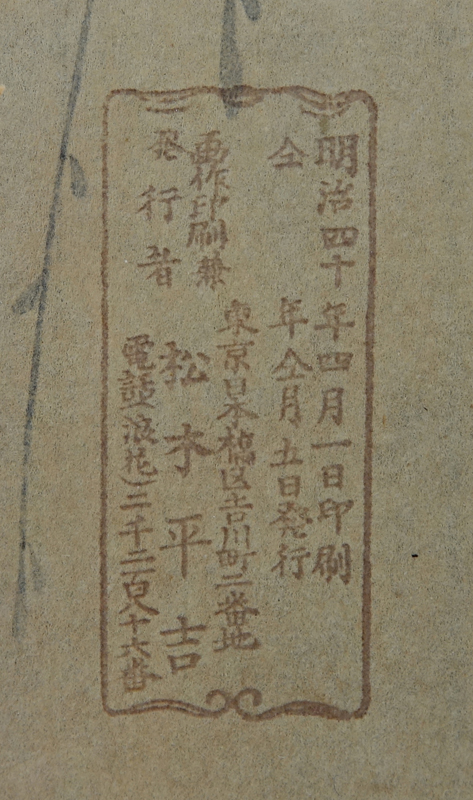 明治四十年四月一日印刷
仝年仝月五日発行
画作印刷兼
発行者
東京日本橋区吉川町二番地
松木平吉
電話(浪花)二千二百八十六番